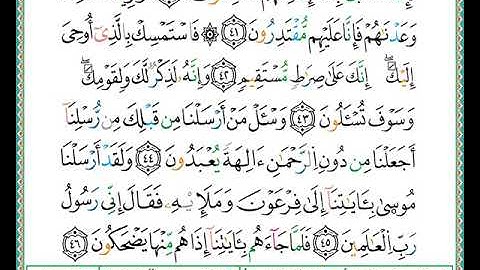 وَعَدْنَٰهُمْ فَإِنَّا عَلَيْهِم مُّقْتَدِرُونَ ﴿٤١﴾ ۞ فَٱسْتَمْسِكْ بِٱلَّذِىٓ أُوحِىَ
إِلَيْكَ ۖ إِنَّكَ عَلَىٰ صِرَٰطٍ مُّسْتَقِيمٍ ﴿٤٢﴾ وَإِنَّهُۥ لَذِكْرٌ لَّكَ وَلِقَوْمِكَ ۖ
وَسَوْفَ تُسْـَٔلُونَ ﴿٤٣﴾ وَسْـَٔلْ مَنْ أَرْسَلْنَا مِن قَبْلِكَ مِن رُّسُلِنَآ
أَجَعَلْنَا مِن دُونِ ٱلرَّحْمَٰنِ ءَالِهَةً يُعْبَدُونَ ﴿٤٤﴾ وَلَقَدْ أَرْسَلْنَا
مُوسَىٰ بِـَٔايَٰتِنَآ إِلَىٰ فِرْعَوْنَ وَمَلَإِيْهِۦ فَقَالَ إِنِّى رَسُولُ
رَبِّ ٱلْعَٰلَمِينَ ﴿٤٥﴾ فَلَمَّا جَآءَهُم بِـَٔايَٰتِنَآ إِذَا هُم مِّنْهَا يَضْحَكُونَ ﴿٤٦﴾